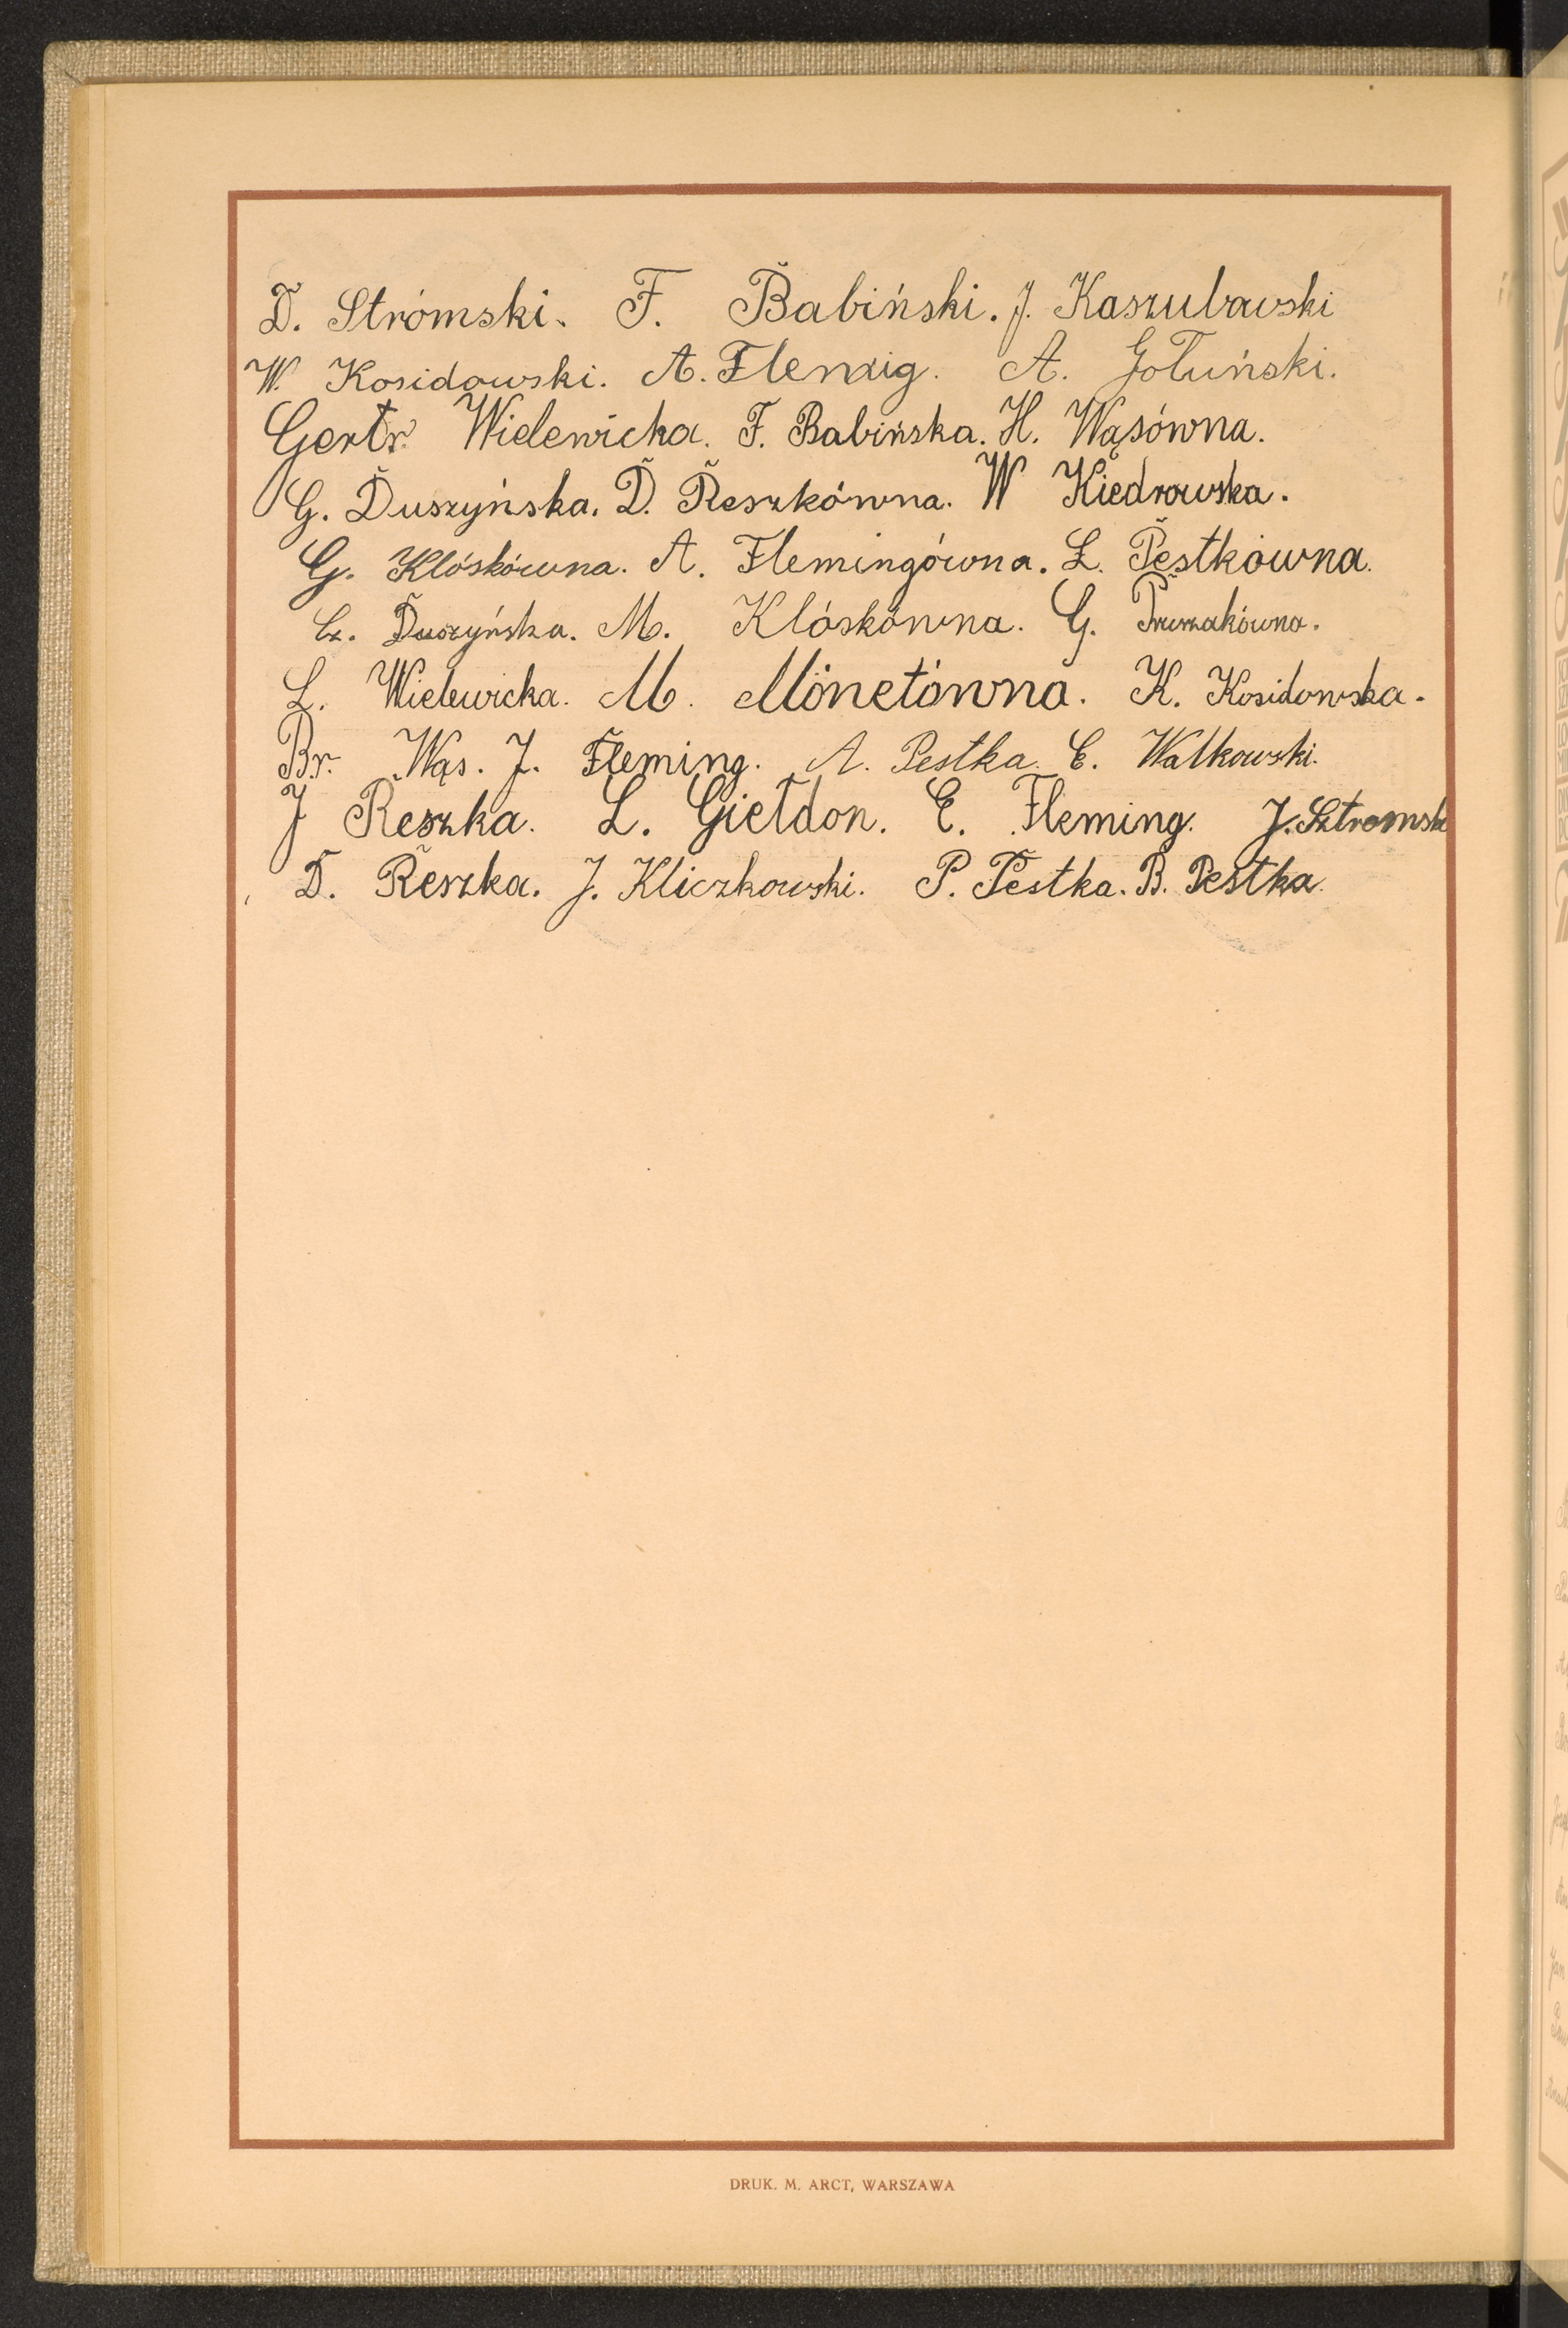 D. Stromski. F. Babiński. J. Kaszubowski
W. Kosidowski. A. Flemig. A. Gołuński.
Gertr. Wielewicka. F. Babińska. H. Wąsówna.
G. Duszyńska. D. Reszkówna. W Kiedrowska.
G. Klóskówna. A. Flemingówna. Ł. Pestkówna.
Cz. Duszyńska. M. Klóskówna. G.
L. Wielewicka. M. Monetówna. K. Kosidowska.
Br. Wąs. J. Fleming. A. Pestka. E. Walkowski.
J Reszka. L. Giełdon. E. Fleming. J. Sztromsk
D. Reszka. J. Kliczkowski. P. Pestka. B. Pestka.
DRUK. M. ARCT, WARSZAWA